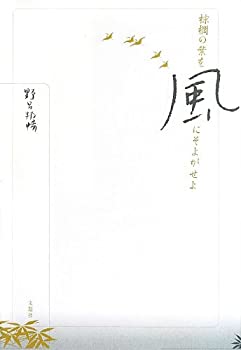 棕櫚の葉を
風
にそよがせよ
野呂邦暢
文遊社